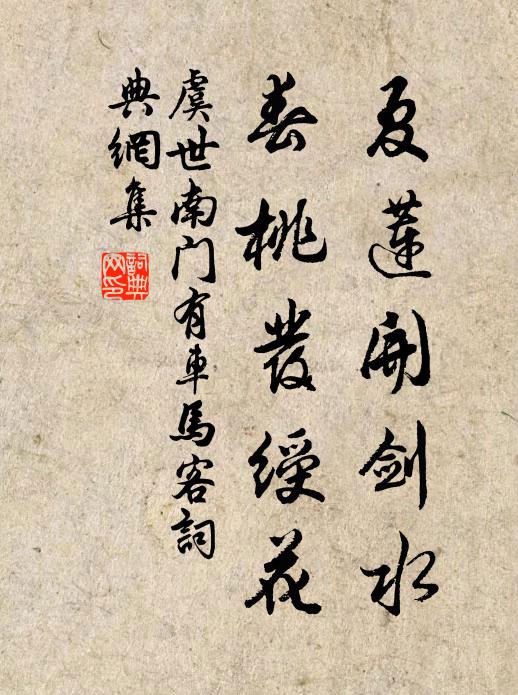 夏蓮開劍水
春桃發綬花
虞世南门有車馬客詞
典網集
詞典網印